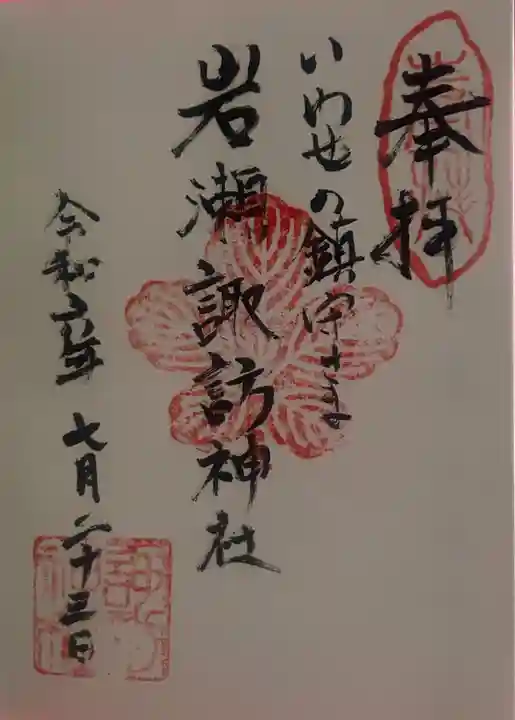 奉拝
いわせの鎮守さま
岩瀬諏訪神社
令和六年七月二十三日
諏訪神社